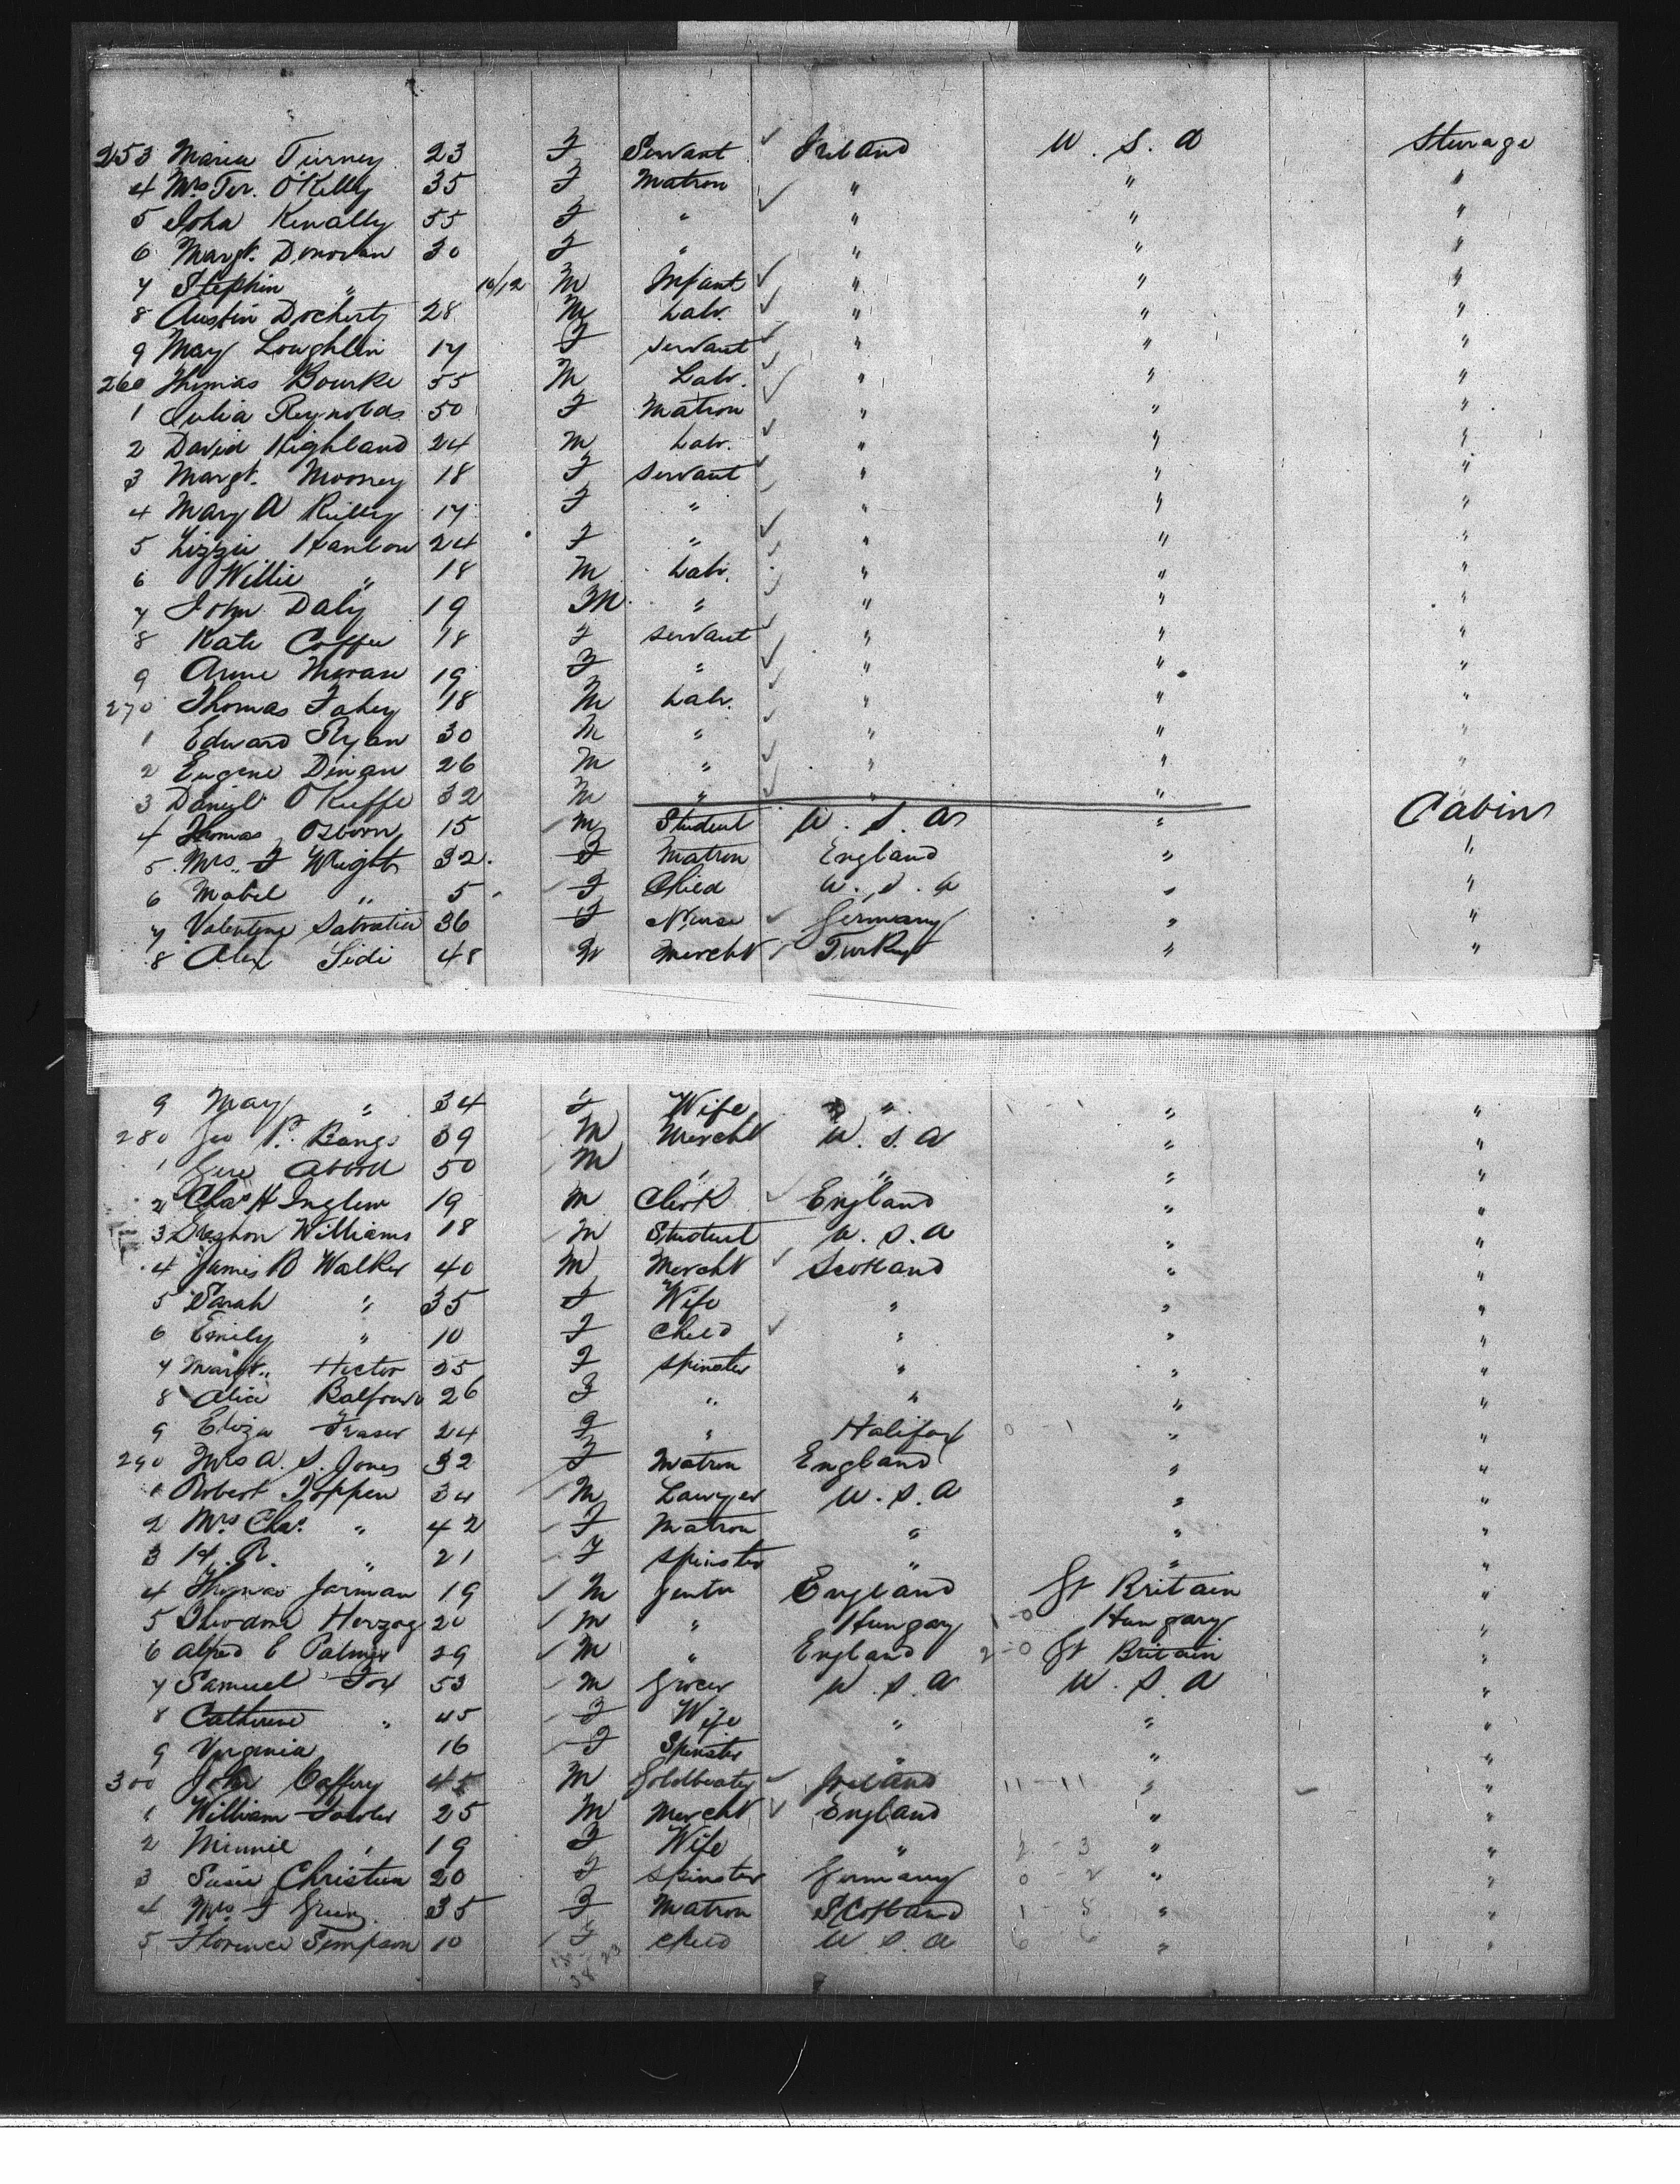 253 Maria Tierney 23 F Servant Ireland U.S.A Sterage
4 Mrs Ter. O'Kelly 35 F Matron " " "
5 Joha Kenally 55 F " " " "
6 Margt. Donovan 30 F " " " "
7 Stephen " 10/12 M Infant " " "
8 Austin Docherty 28 M Labr. " " "
9 May Loughlin 17 F Servant " " "
260 Thomas Bourke 55 M Labr. " " "
1 Julia Reynolds 50 F Matron " " "
2 David Highland 24 M Labr. " " "
3 Margt. Mooney 18 F Servant " " "
4 Mary A Reilly 17 F " " " "
5 Lizzie Hanlon 24 F " " " "
6 Willie " 18 M Labr. " " "
7 John Daly 19 M " " " "
8 Kate Coffee 18 F servant " " "
9 Anne Moran 19 F " " " "
270 Thomas Fahey 18 M Labr. " " "
1 Edward Ryan 30 M " " " "
2 Eugene Dinan 26 M " " " "
3 Danyl O'Keeffe 32 M " " "
4 Thomas Osborn 15 M Student U.S.A " Cabin
5 Mrs F Wright 32 F Matron England " "
6 Mabel " 5 F Child U.S.A " "
7 Valentine 36 F Nurse Germany " "
8 Alex Sidi 48 M Mercht Turkey " "
9 May " 34 F Wife " " "
280 Geo P. Bangs 39 M Mercht U.S.A " "
1 Abbott 50 M " " " "
2 Chas H Inglew 19 M Clerk England " "
3 Williams 18 M Student U.S.A " "
4 James B Walker 40 M Mercht Scotland " "
5 Sarah " 35 F Wife " " "
6 Emily " 10 F Child " " "
7 Margt. Hector 25 F Spinster " " "
8 Alice Balfour 26 F " " " "
9 Eliza Fraser 24 F " Halifax " "
290 Mrs A. S. Jones 32 F Matron England " "
1 Robert Toppen 34 M Lawyer U.S.A " "
2 Mrs Chas " 42 F Matron " " "
3 H. R. " 21 F Spinster " " "
4 Thomas Jarman 19 M Gentn England Gt Britain "
5 Theodore Herzog 20 M " Hungary 1-0 Hungary "
6 Alfred E Palmer 29 M " England 2-0 Gt Britain "
7 Samuel Fox 53 M Grocer U.S.A U.S.A "
8 Catherine " 45 F Wife " " "
9 Virginia 16 F Spinster " " "
300 John Caffery 45 M Goldbeater Ireland 11-11 " "
1 William Fowler 25 M Mercht England " "
2 Minnie " 19 F Wife " 2-3 " "
3 Susie Christien 20 F Spinster Germany 0-2 " "
4 Mrs F Green 35 F Matron Scotland 1-5 " "
5 Florence Simpson 10 F Child U.S.A 6-6 " "